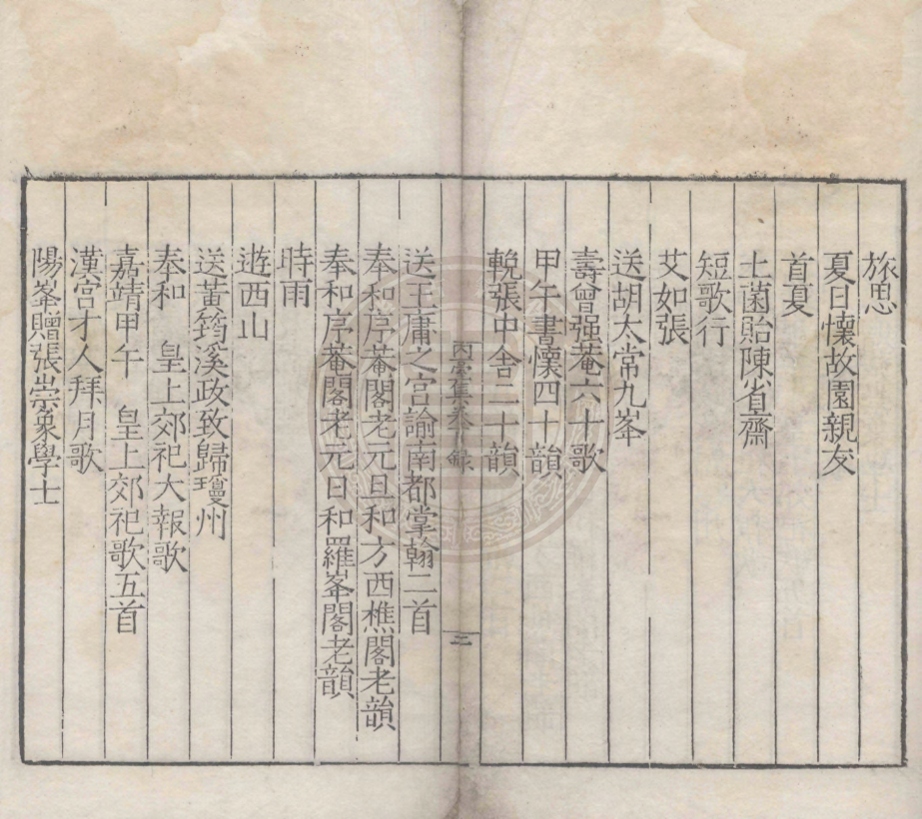 旅思
夏日懷故園親友
首夏
土菌貽陳省齋
短歌行
艾如張
送胡太常九峯
壽曾强菴六十歌
甲午書懷四十韻
輓張中舍二十韻
集卷 錄
二
送王庸之宫諭南都掌翰二首
奉和序菴閣老元旦和方西樵閣老韻
奉和序菴閣老元日和羅峯閣老韻
時雨
遊西山
送黃筠溪政致歸瓊州
奉和　皇上郊祀大報歌
嘉靖甲午　皇上郊祀歌五首
漢宫才人拜月歌
陽峯贈張崇象學士